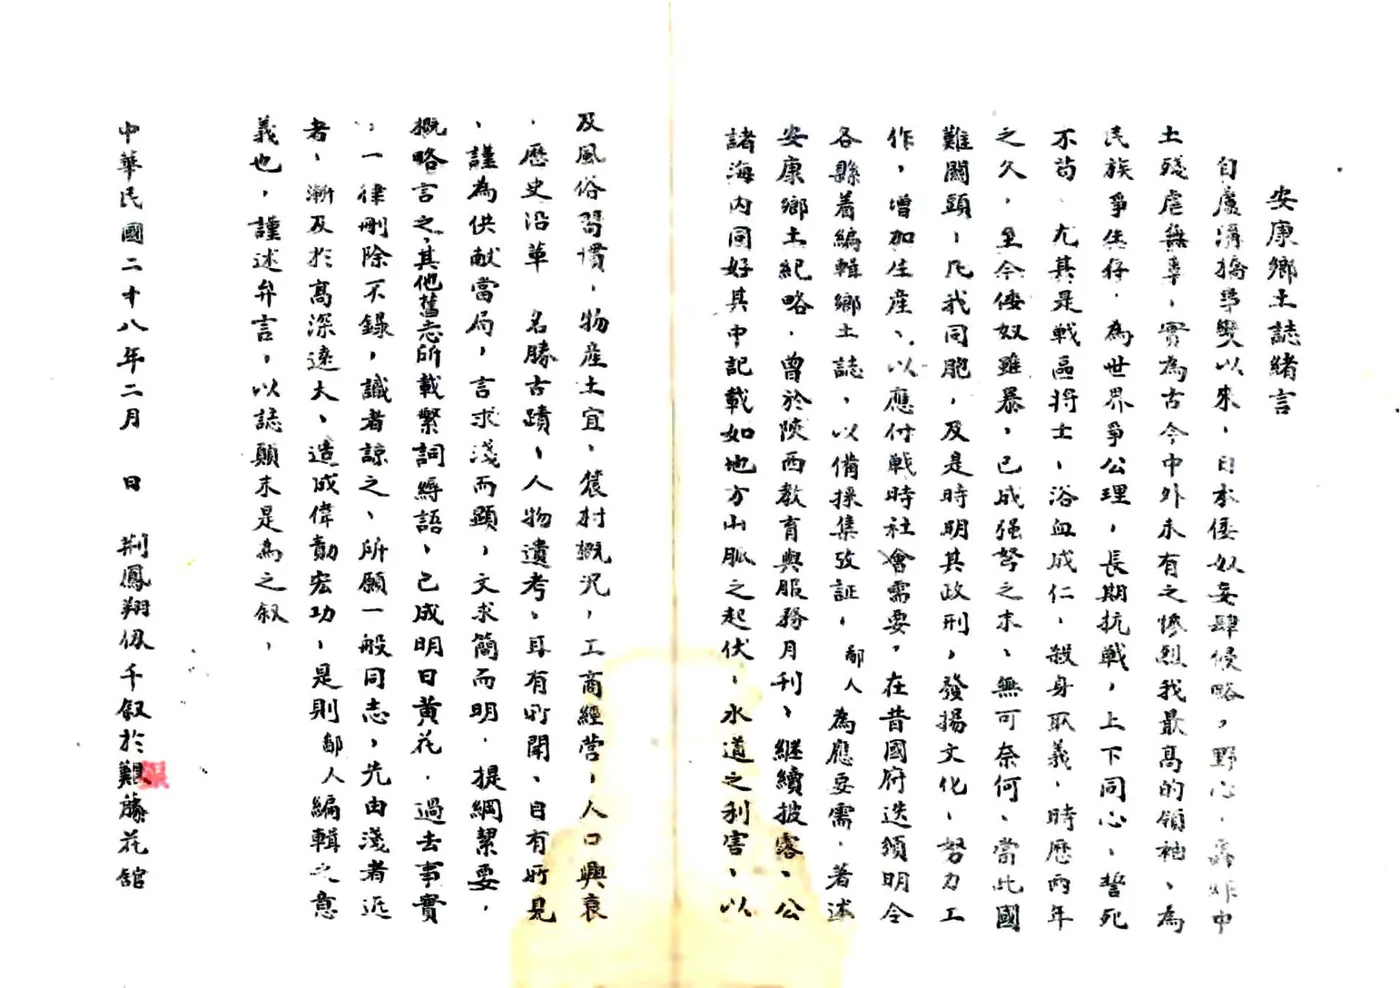 安康鄉土誌緒言
自蘆溝撟事變以來，日本倭奴妄肆侵略，野心，轟炸中
土殘虐無辜，實為古今中外未有之慘烈我最高的領袖、為
民族爭生存，為世界爭公理，長期抗戰，上下同心，誓死
不苟、尤其是戰區將士，浴血成仁，殺身取義，時歷兩年
之久，至今倭奴雖暴，已成强弩之末、無可奈何、當此國
難關頭，凡我同胞，及是時明其政刑，發揚文化，努力工
作，增加生產、以應付戰時社會需要，在昔國府迭須明令
各縣着編輯鄉土誌，以備採集攷証，鄙人為應要需，著述
安康鄉土紀略，曾於陝西教育與服務月刊、繼續披露、公
諸海內同好其中記載如地方山脈之起伏，水道之利害、以
及風俗習慣，物產土宜，農村概況，工商經营，人口興衰
，歷史沿革 名勝古蹟，人物遺考，耳有所聞、目有所見
，謹為供献當局，言求淺而顯，文求簡而明，提綱絜要，
概略言之，其他舊志所載繁詞縟語，已成明日黃花，過去事實
，一律刪除不錄，識者諒之、所願一般同志，先由淺者近
者，漸及於高深遠大，造成偉勳宏功，是則鄙人編輯之意
義也，謹述弁言，以誌顛末是為之叙，
中華民國二十八年二月 日 荆鳳翔仭千叙於觀藤花舘